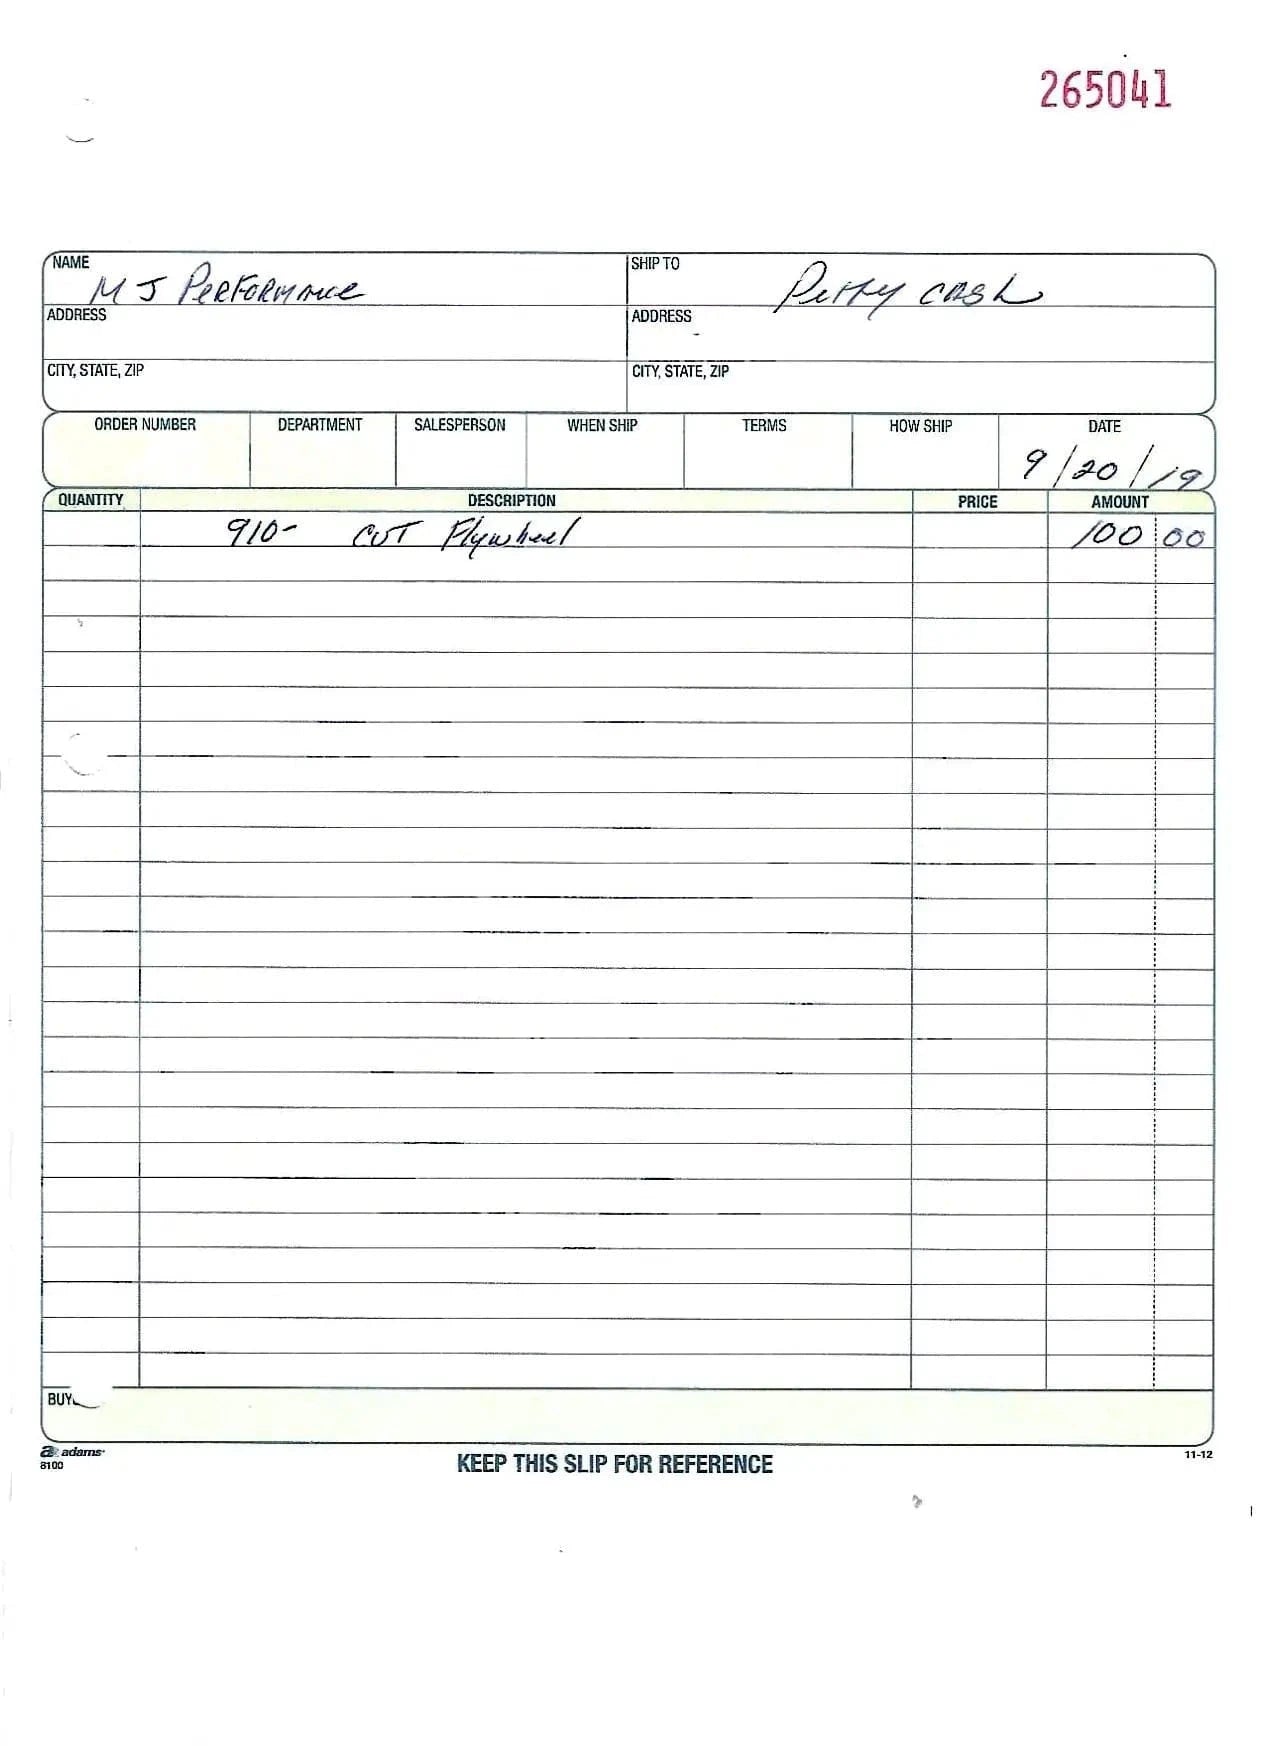 265041
NAME SHIP TO
M J Performance Petty cash
ADDRESS ADDRESS
CITY, STATE, ZIP CITY, STATE, ZIP
ORDER NUMBER DEPARTMENT SALESPERSON WHEN SHIP TERMS HOW SHIP DATE
9/20/19
QUANTITY DESCRIPTION PRICE AMOUNT
910- CUT Flywheel 100 00
BUY
adams
8100
KEEP THIS SLIP FOR REFERENCE
11-12